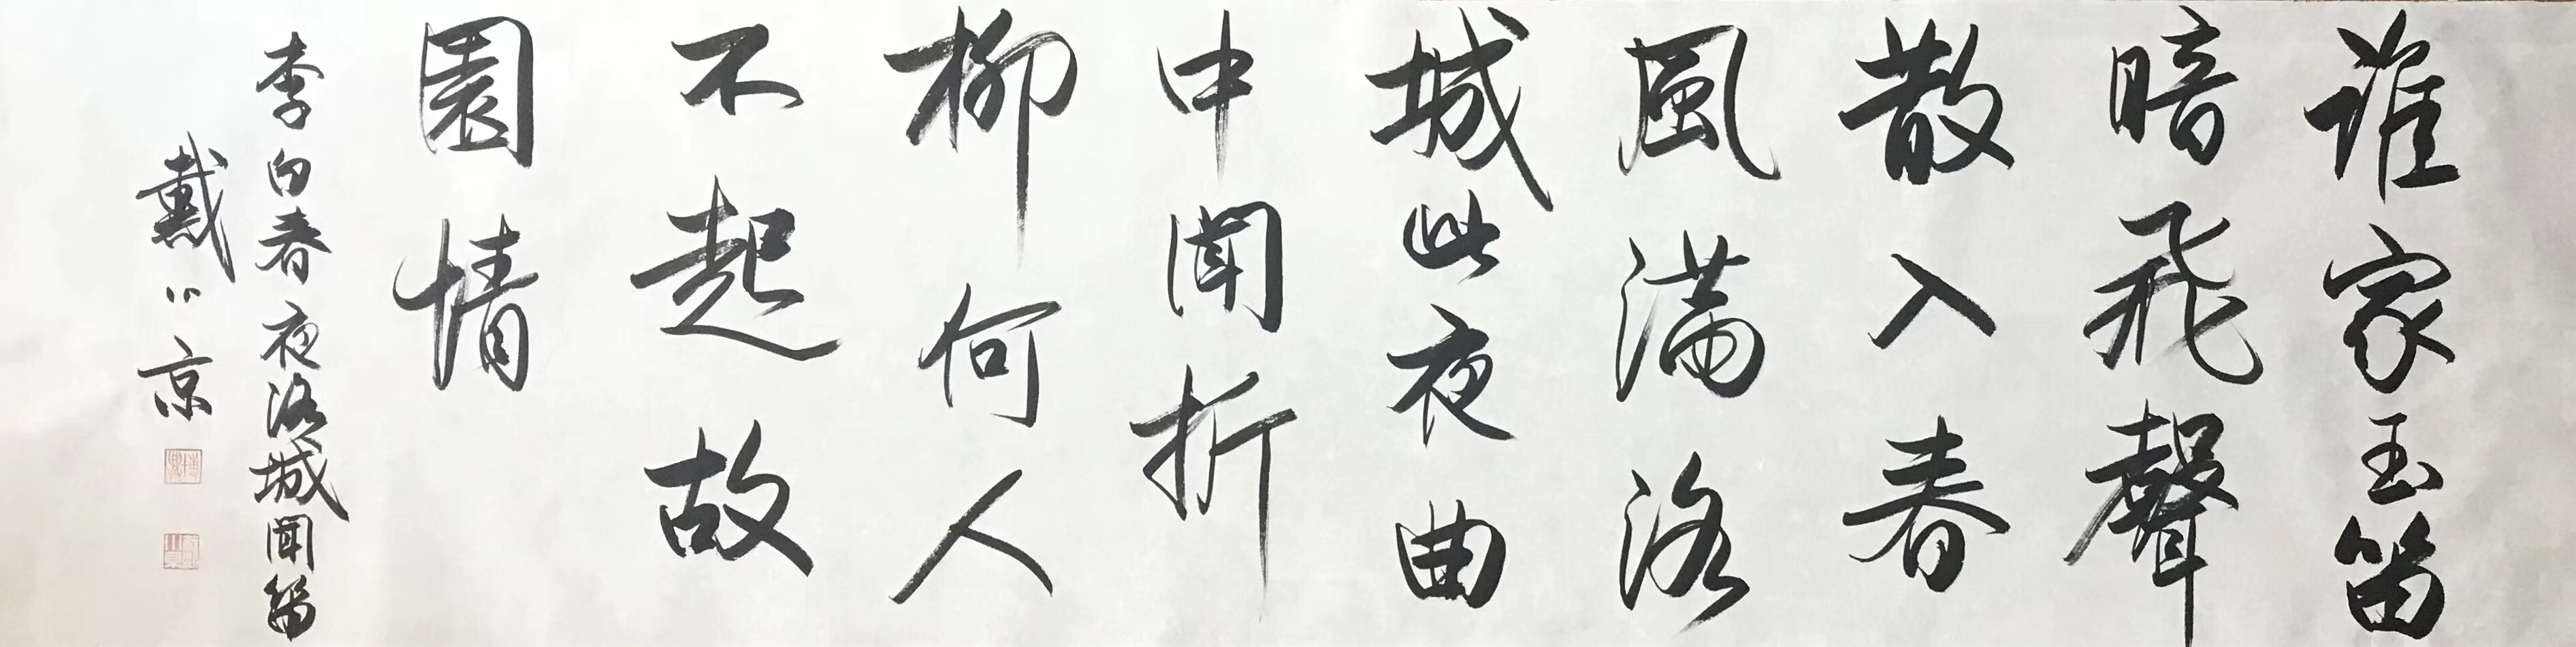 誰家玉笛
暗飛聲
散入春
風滿洛
城此夜曲
中聞折
柳何人
不起故
園情
李白春夜洛城聞笛
戴京